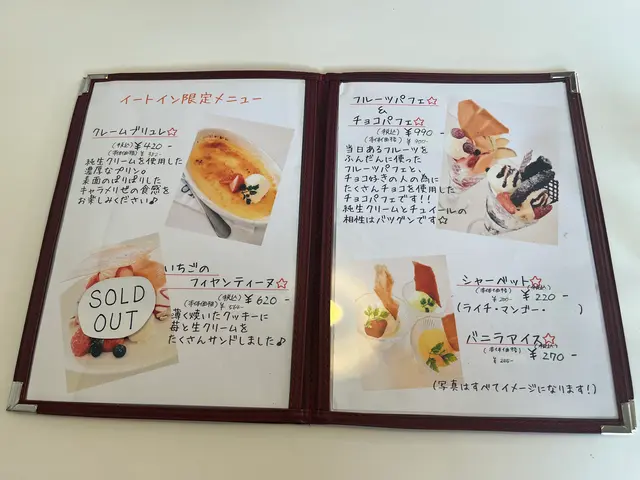 イートイン限定メニュー
クレームブリュレ☆
(税込) ¥420-
(本体価格)
純生クリームを使用した
濃厚なプリン。
表面のぱりぱりした
キャラメリゼの食感を
お楽しみください♪
いちごの
フィヤンティーヌ☆
(税込) ¥620-
(本体価格)
薄く焼いたクッキーに
苺と生クリームを
たくさんサンドしました♪
SOLD
OUT
フルーツパフェ☆
&
チョコパフェ☆
(税込) ¥990-
(本体価格) ¥900-
当日あるフルーツを
ふんだんに使った
フルーツパフェと、
チョコ好きの人の為に
たくさんチョコを使用した
チョコパフェです!!
純生クリームとチュイールの
相性はバツグンです☆
シャーベット☆
(本体価格) (税込)
¥220-
(ライチ・マンゴー・ )
バニラアイス☆
(本体価格) (税込)
¥270-
(写真はすべてイメージになります!)